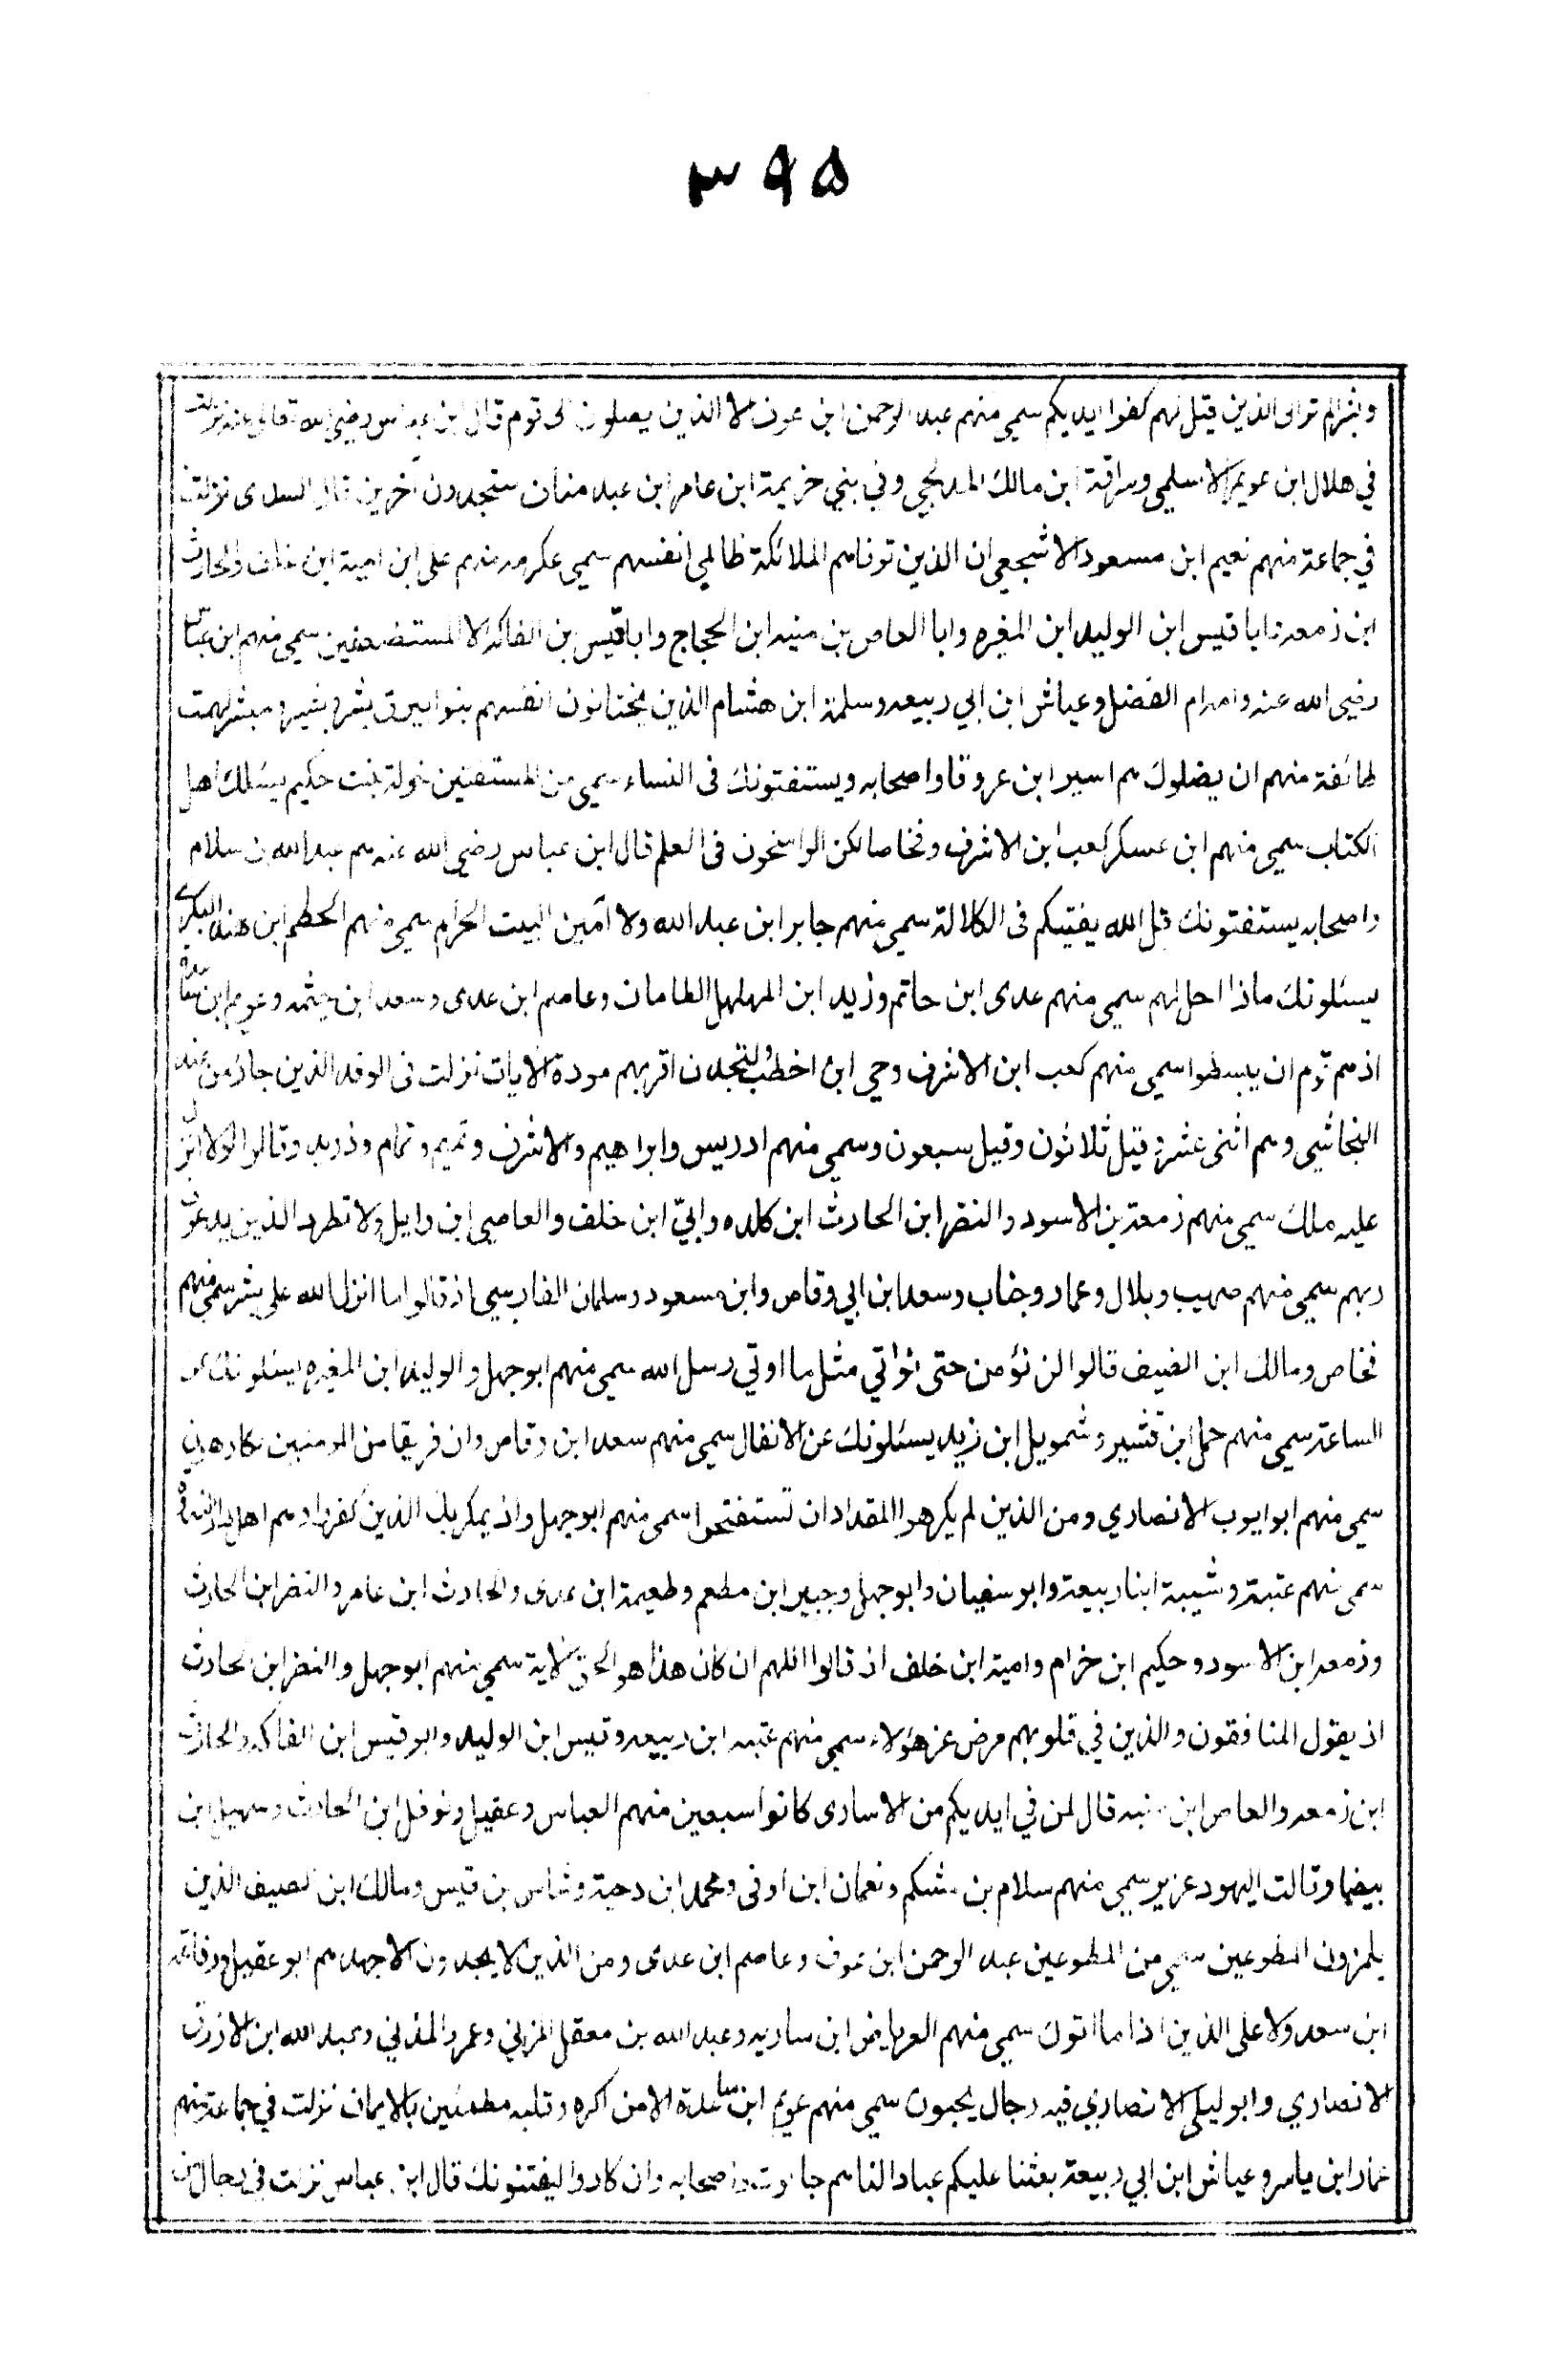 ۳۹۵
وبشر الم تر الى الذين قيل لهم كفوا ايديكم سمي منهم عبد الرحمن ابن عون الا الذين يصلون الى قوم قال ابن عباس رضي الله تعالى عنه نزلت
في هلال ابن عويمر الاسلمي وسراقة ابن مالك المدلجي وفي بني خزيمة ابن عامر ابن عبد مناف ستجدون آخرين قال السدى نزلت
في جماعة منهم نعيم ابن مسعود الاشجعي ان الذين توفاهم الملائكة ظالمي انفسهم سمي عكرمه منهم على ابن امية ابن خلف والحارث
ابن زمعه وابا قيس ابن الوليد ابن المغيره وابا العاص بن منيه ابن الحجاج وابا قيس بن الفاكه الا المستضعفين سمي منهم ابن عباس
رضي الله عنه وامه ام الفضل وعياش ابن ابي ربيعه وسلمة ابن هشام الذين يختانون انفسهم بنو ابيرق بشر وبشير ومبشر لهمت
طائفة منهم ان يضلوك هم اسير ابن عروة واصحابه ويستفتونك فى النساء سمي من المستفتين خولة بنت حكيم يسئلك اهل
الكتاب سمي منهم ابن عسكر كعب ابن الاشرف وفخاصا لكن الراسخون فى العلم قال ابن عباس رضي الله عنه هم عبد الله بن سلام
واصحابه يستفتونك قل الله يفتيكم فى الكلالة سمي منهم جابر ابن عبد الله ولا آمين البيت الحرام سمي منهم الحطم ابن هند البكرى
يسئلونك ماذا احل لهم سمي منهم عدى ابن حاتم وزيد ابن المهلهل الطامان وعاصم ابن عدى وسعد ابن خيثمه وعويم ابن ساعده
اذ هم قوم ان يبسطوا سمي منهم كعب ابن الاشرف وحي ابن اخطب ولتجدن اقربهم مودة الايات نزلت فى الوفد الذين جاؤ من عند
النجاشي وهم اثنى عشر وقيل ثلاثون وقيل سبعون وسمي منهم ادريس وابراهيم والاشرف وتميم وتمام ودريد وقالوا لولا انزل
عليه ملك سمي منهم زمعة بن الاسود والنضر ابن الحارث ابن كلده وابيّ ابن خلف والعاصي ابن وايل ولا تطرد الذين يدعون
ربهم سمي منهم صهيب وبلال وعمار وخباب وسعد ابن ابي وقاص وابن مسعود وسلمان الفارسي اذ قالوا ما انزل الله على بشر سمي منهم
فخاص ومالك ابن الضيف قالوا لن نؤمن حتى نؤتي مثل ما اوتي رسل الله سمي منهم ابو جهل والوليد ابن المغيره يسئلونك عن
الساعة سمي منهم حمل ابن قشير وشمويل ابن زيد يسئلونك عن الانفال سمي منهم سعد ابن وقاص وان فريقا من المومنين لكارهون
سمي منهم ابو ايوب الانصاري ومن الذين لم يكرهوا المقداد ان تستفتحوا سمي منهم ابو جهل واذ يمكر بك الذين كفروا وهم اهل دار الندوة
سمي منهم عتبة وشيبة ابنا ربيعة وابو سفيان وابو جهل وجبير ابن مطعم وطعيمة ابن عدى والحارث ابن عامر والنضر ابن الحارث
وزمعه ابن الاسود وحكيم ابن خزام وامية ابن خلف اذ قالوا اللهم ان كان هذا هو الحق الاية سمي منهم ابو جهل والنضر ابن الحارث
اذ يقول المنافقون والذين في قلوبهم مرض غر هؤلاء سمي منهم عتبه ابن ربيعه وقيس ابن الوليد وابو قيس ابن الفاكه والحارث
ابن زمعه والعاص ابن منبه قال لمن في ايديكم من الاسارى كانوا سبعين منهم العباس وعقيل ونوفل ابن الحارث وسهيل ابن
بيضا وقالت اليهود عزير سمي منهم سلام بن مشكم ونعمان ابن اوفى ومحمد ابن دحية وشاس بن قيس ومالك ابن الصيف الذين
يلمزون المطوعين سمي من المطوعين عبد الرحمن ابن عوف وعاصم ابن عدى ومن الذين لا يجدون الا جهدهم ابو عقيل ورفاعه
ابن سعد ولا على الذين اذا ما اتوك سمي منهم العرباض ابن ساريه وعبد الله بن معقل المزني وعمرو المذني وعبد الله ابن الازرق
الانصاري وابو ليلى الانصاري فيه رجال يحبون سمي منهم عويم ابن ساعدة الا من اكره وقلبه مطمئنين بالايمان نزلت في جماعة منهم
عمار ابن ياسر وعياش ابن ابي ربيعة بعثنا عليكم عبادا لنا هم جالوت واصحابه وان كادوا ليفتنونك قال ابن عباس نزلت في رجال من